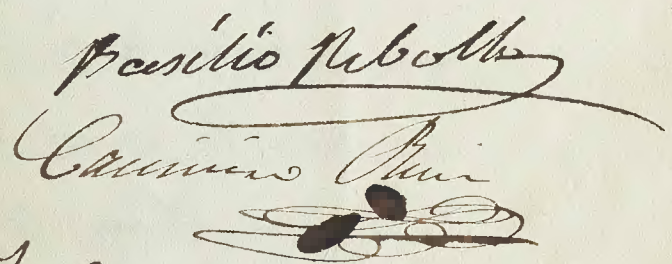 Basilio Rebollo
Casimiro Ruiz